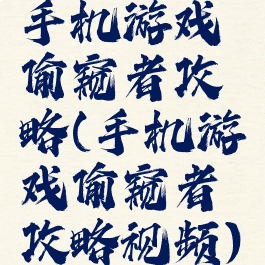 手机游戏
偷窥者攻
略(手机游
戏偷窥者
攻略视频)